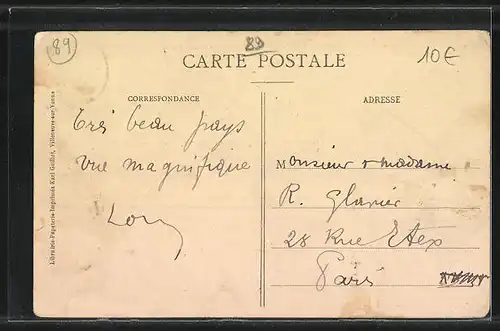 89
89
10€
CARTE POSTALE
CORRESPONDANCE
Très beau pays
vue magnifique
ADRESSE
Monsieur & Madame
R.
28 Rue Etex
Paris
Librairie-Papeterie-Imprimerie Karl Guillot, Villeneuve-sur-Yonne